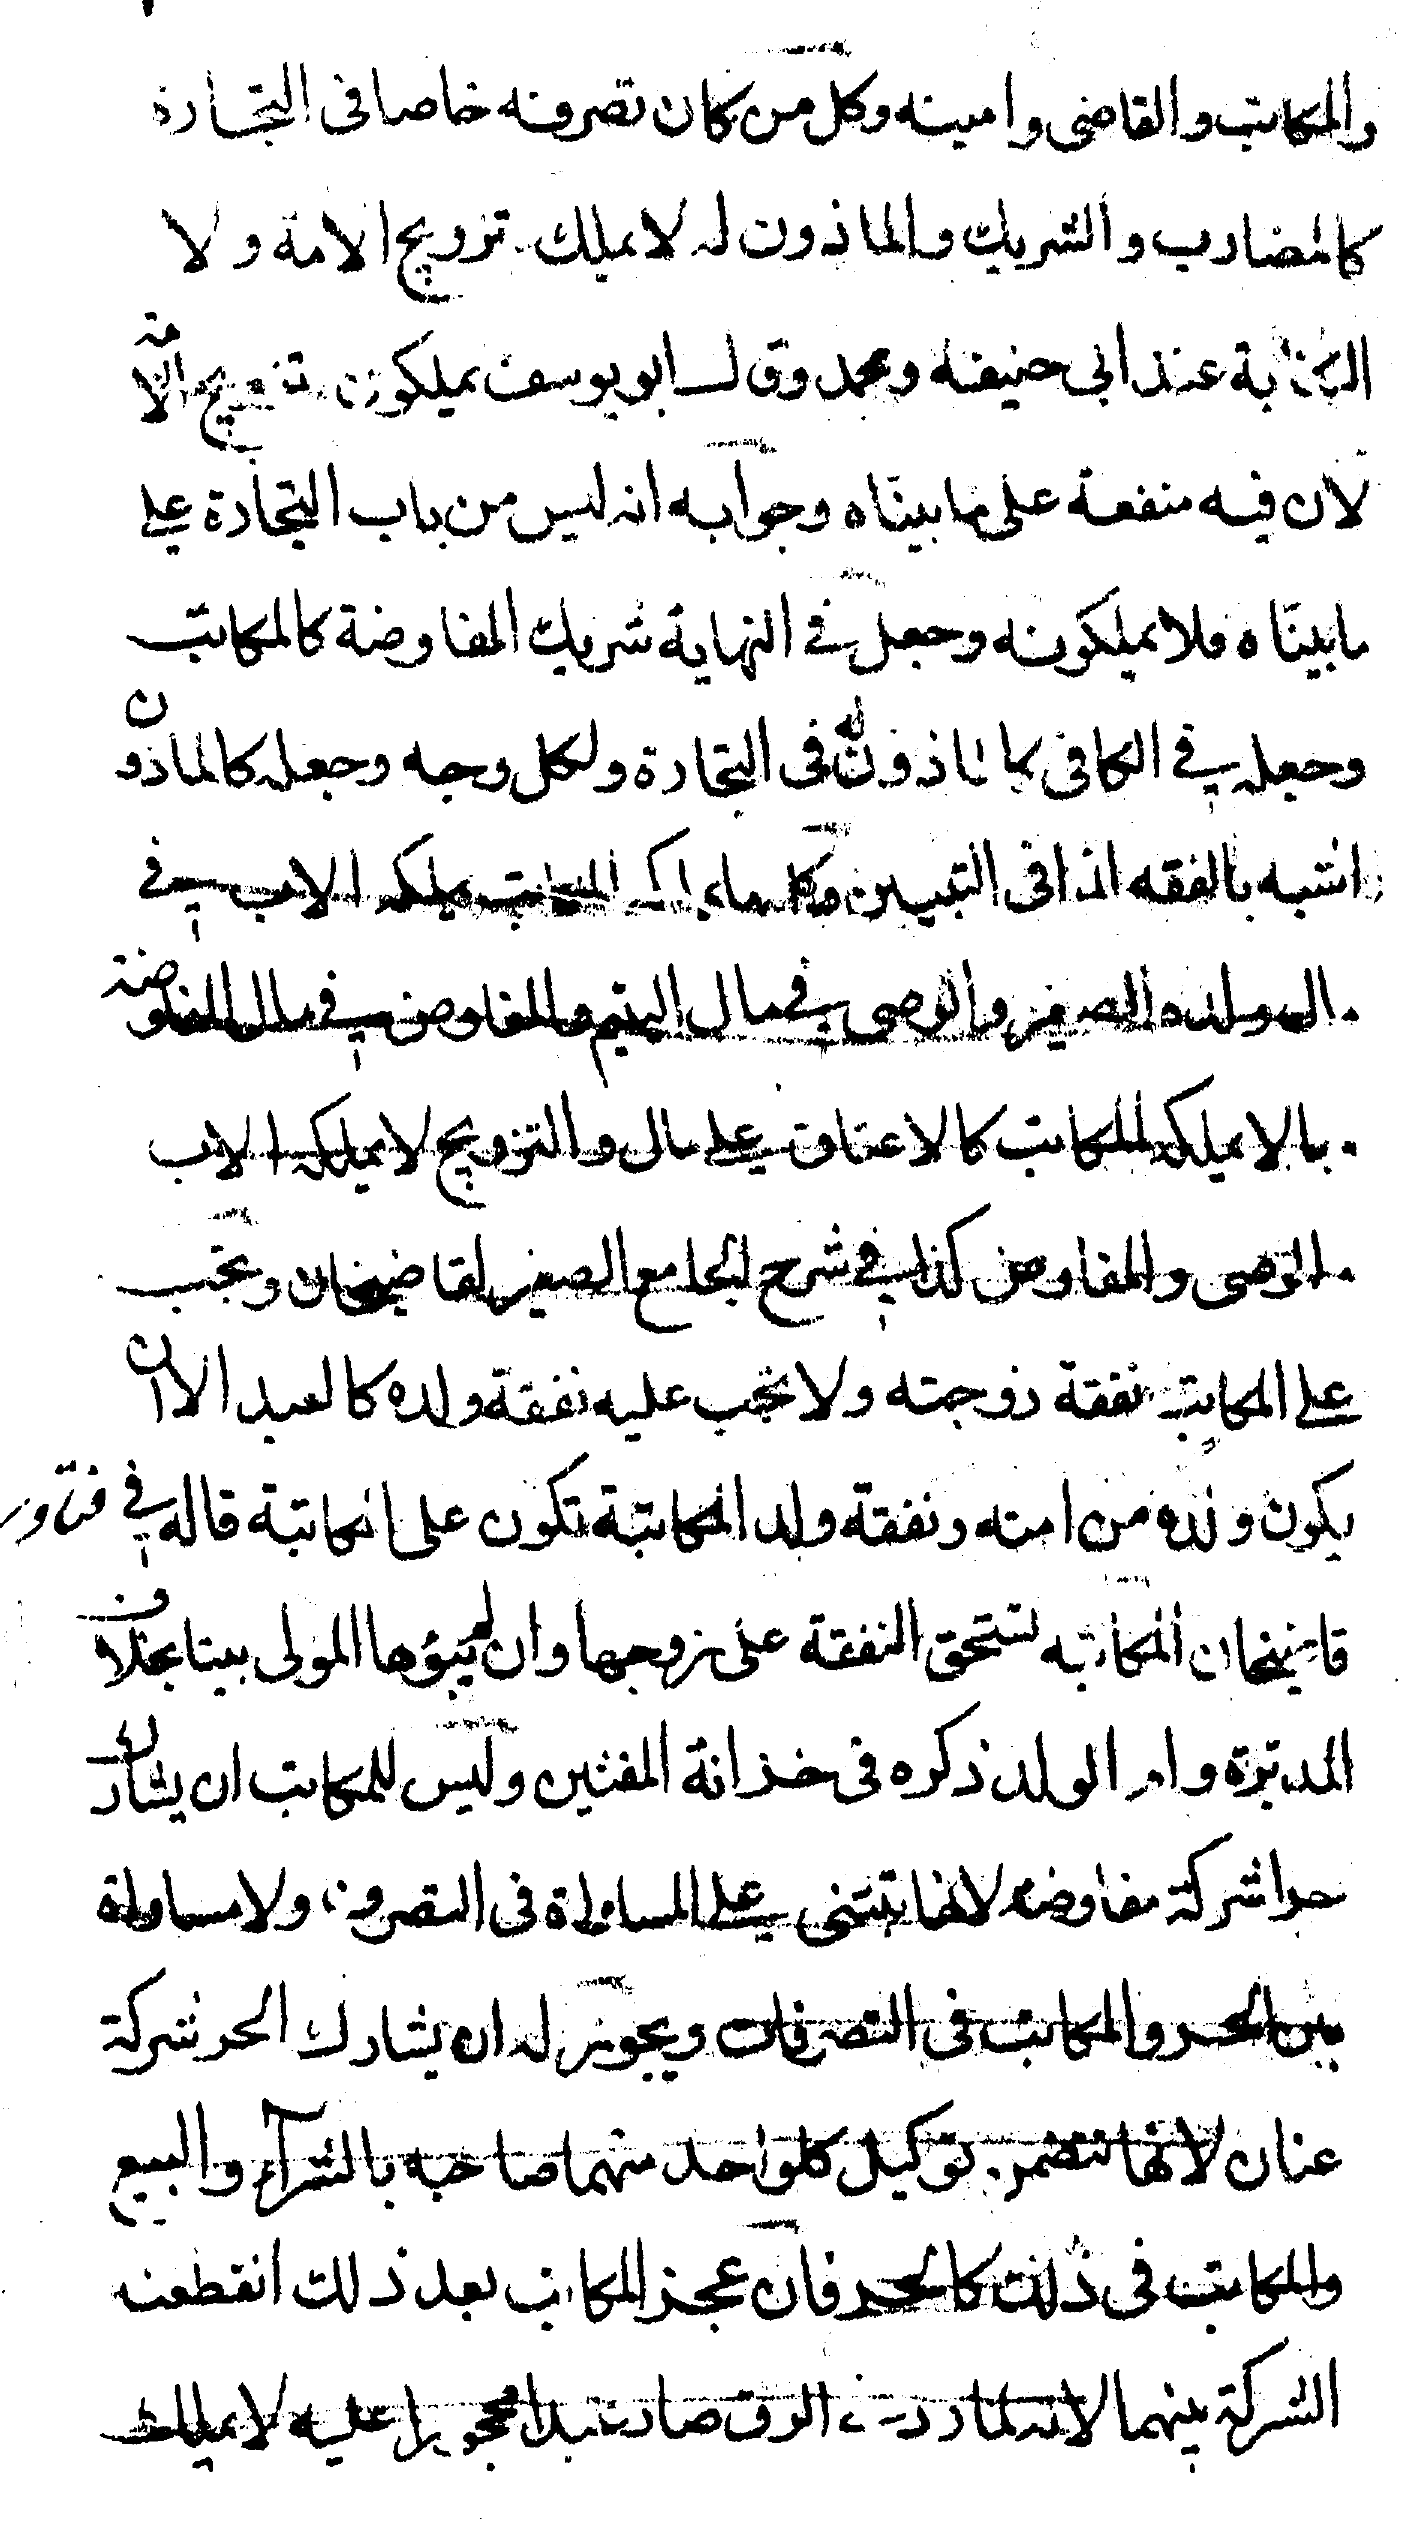 والمكاتب والقاضى وامينه وكل من كان تصرفه خاصا فى التجارة
كالمضارب والشريك والماذون له لا يملك تزويج الامة ولا
الكتابة عند ابى حنيفة ومحمد وقال ابو يوسف يملكون تزويج الامة
لان فيه منفعة على ما بيناه وجوابه انه ليس من باب التجارة على
ما بيناه فلا يملكونه وجعل فى النهاية شريك المفاوضة كالمكاتب
وجعله فى الكافى كالماذون له فى التجارة ولكل وجه وجعله كالماذون
اشبه بالفقه كذا فى التبيين وكل ما يملكه المكاتب يملكه الاب فى
مال ولده الصغير والوصى فى مال اليتيم والمفاوض فى مال المفاوضة
ما لا يملكه المكاتب كالاعتاق على مال والتزويج لا يملكه الاب
والوصى والمفاوض كذا فى شرح الجامع الصغير لقاضيخان وتجب
على المكاتب نفقة زوجته ولا تجب عليه نفقة ولده كالعبد الا ان
يكون ولده من امته ونفقة ولد المكاتبة تكون على المكاتبة قاله فى فتاوى
قاضيخان المكاتبه تستحق النفقة على زوجها وان لم يبؤها المولى بيتا بخلاف
المدبرة وام الولد ذكره فى خزانة المفتين وليس للمكاتب ان يشارك
حرا شركة مفاوضه لانها تبتنى على المساواة فى التصرف ولا مساواة
بين الحر والمكاتب فى التصرفات ويجوز له ان يشارك الحر شركة
عنان لانها تتضمن توكيل كلواحد منهما صاحبه بالشرآء والبيع
والمكاتب فى ذلك كالحر فان عجز المكاتب بعد ذلك انقطعت
الشركة بينهما لانه لما رد فى الرق صار عبدا محجورا عليه لا يملك